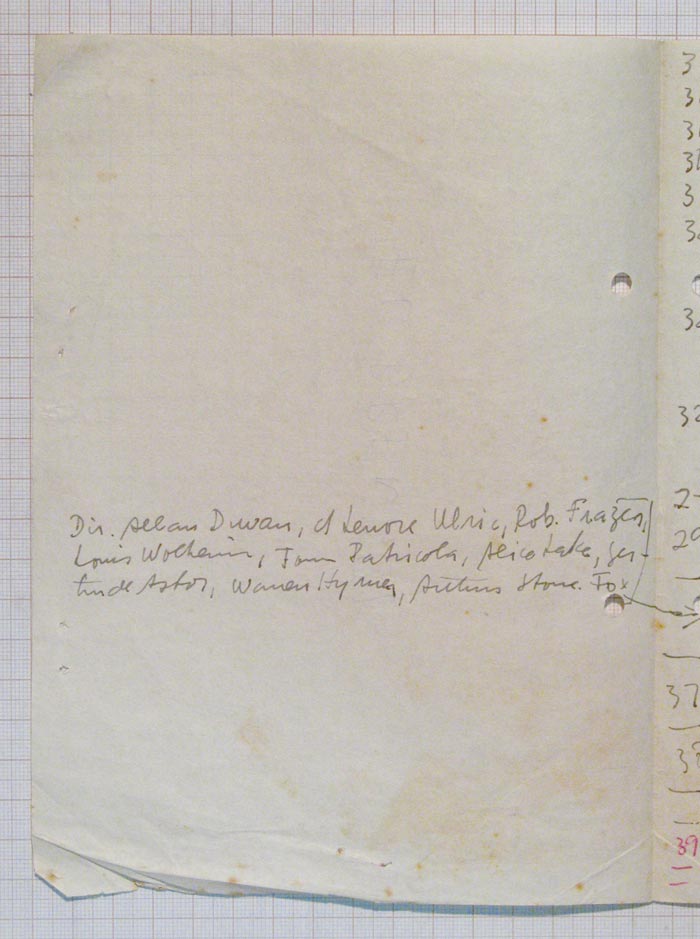 Dir. Allan Dwan, c/ Lenore Ulric, Rob. Frazer,
Louis Wolheim, Tom Patricola, Alice Lake, Ger-
trude Astor, Warren Hymer, Arthur Stone. Fox
37
39